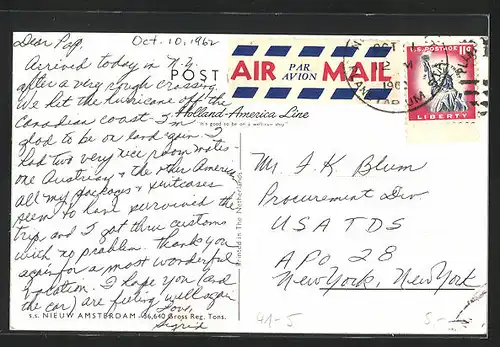 Dear Pap, Oct. 10, 1962
Arrived today in N.Y.
after a very rough crossing.
We hit the hurricane off the
Canadian coast. I'm
glad to be on land again. I
had two very nice room mates -
one Austrian & the other American
all my packages & suitcases
seem to have survived the
trip and I got thru customs
with no problem. Thank you
again for a most wonderful
vacation. I hope you (and
the car) are feeling well again
Love,
Sigrid
s.s. NIEUW AMSTERDAM - 36,640 Gross Reg. Tons.
POST
AIR PAR AVION MAIL
Holland-America Line
"It's good to be on a well-run ship"
Printed in The Netherlands
OCT
196
U.S. POSTAGE 11¢
LIBERTY
Mr. F. K. Blum
Procurement Div.
USATDS
APO 28
New York, New York